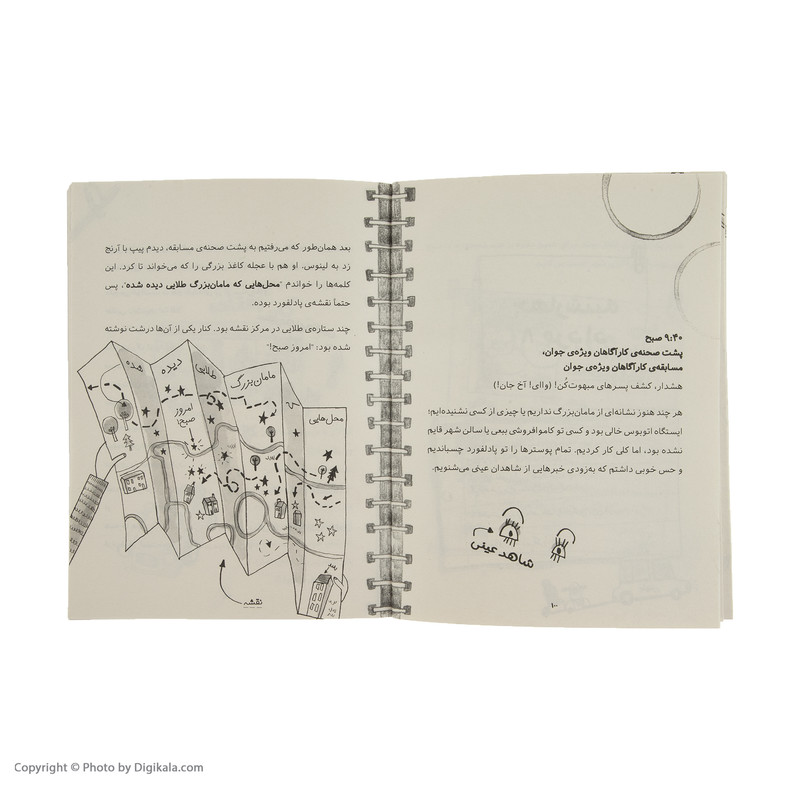 ۹:۴۰ صبح
پشت صحنه‌ی کارآگاهان ویژه‌ی جوان،
مسابقه‌ی کارآگاهان ویژه‌ی جوان
هشدار، کشف پسرهای مبهوت‌کُن! (وااای! آخ جان!)
هر چند هنوز نشانه‌ای از مامان‌بزرگ نداریم یا چیزی از کسی نشنیده‌ایم؛
ایستگاه اتوبوس خالی بود و کسی تو کاموافروشی بیعی یا سالن شهر قایم
نشده بود، اما کلی کار کردیم. تمام پوسترها را تو پادلفورد چسباندیم
و حس خوبی داشتم که به‌زودی خبرهایی از شاهدان عینی می‌شنویم.
شاهد عینی
۱۰۰
بعد همان‌طور که می‌رفتیم به پشت صحنه‌ی مسابقه، دیدم پیپ با آرنج
زد به لینوس. او هم با عجله کاغذ بزرگی را که می‌خواند تا کرد. این
کلمه‌ها را خواندم "محل‌هایی که مامان‌بزرگ طلایی دیده شده"، پس
حتماً نقشه‌ی پادلفورد بوده.
چند ستاره‌ی طلایی در مرکز نقشه بود. کنار یکی از آن‌ها درشت نوشته
شده بود: "امروز صبح!"
محل‌هایی
مامان‌بزرگ
طلایی
دیده
شده
امروز
صبح!
نقشه
Copyright © Photo by Digikala.com